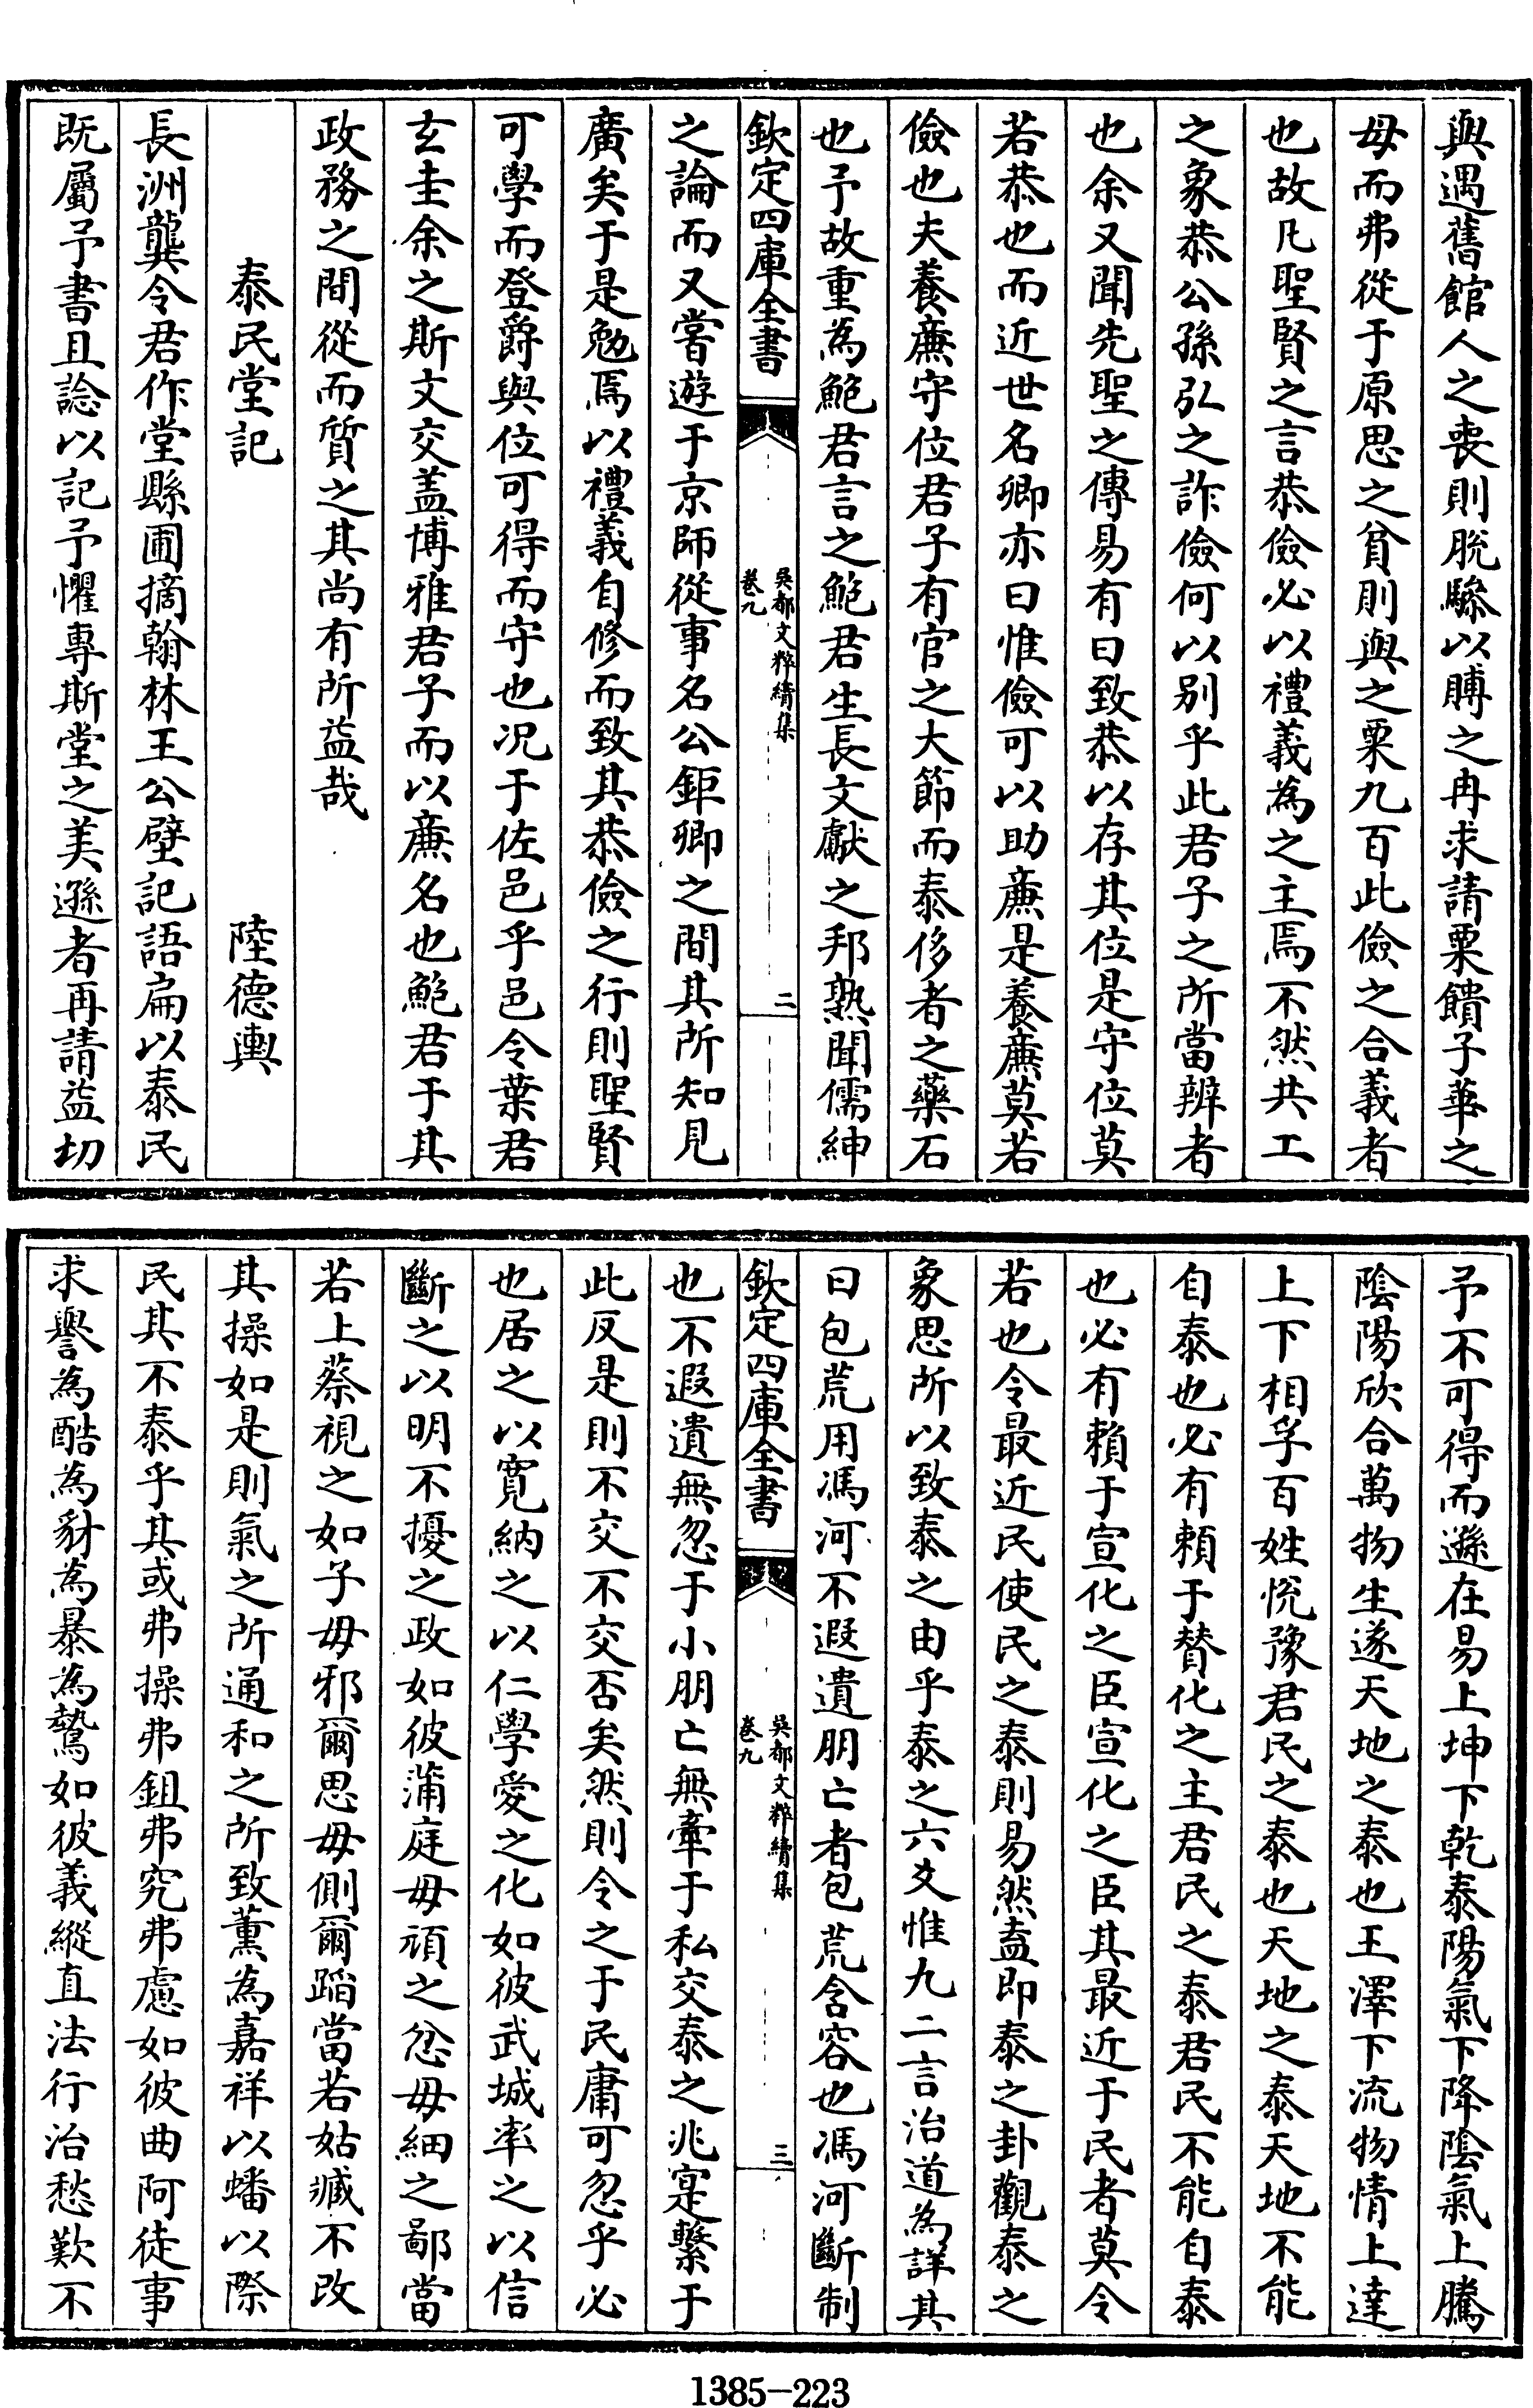 與遇舊館人之喪則脫驂以賻之冉求請粟饋子華之
母而弗從于原思之貧則與之粟九百此儉之合義者
也故凡聖賢之言恭儉必以禮義為之主焉不然共工
之象恭公孫弘之詐儉何以别乎此君子之所當辨者
也余又聞先聖之傳易有曰致恭以存其位是守位莫
若恭也而近世名卿亦曰惟儉可以助廉是養廉莫若
儉也夫養廉守位君子有官之大節而泰侈者之藥石
也予故重為鮑君言之鮑君生長文獻之邦熟聞儒紳
欽定四庫全書
吳都文粹續集
卷九
二
之論而又嘗遊于京師從事名公鉅卿之間其所知見
廣矣于是勉焉以禮義自修而致其恭儉之行則聖賢
可學而登爵與位可得而守也况于佐邑乎邑令葉君
玄圭余之斯文交盖博雅君子而以廉名也鮑君于其
政務之間從而質之其尚有所益哉
泰民堂記 陸德輿
長洲龔令君作堂縣圃摘翰林王公壁記語扁以泰民
既屬予書且諗以記予懼專斯堂之美遜者再請益切
予不可得而遜在易上坤下乾泰陽氣下降陰氣上騰
陰陽欣合萬物生遂天地之泰也王澤下流物情上達
上下相孚百姓悅豫君民之泰也天地之泰天地不能
自泰也必有賴于贊化之主君民之泰君民不能自泰
也必有賴于宣化之臣宣化之臣其最近于民者莫令
若也令最近民使民之泰則易然盍即泰之卦觀泰之
象思所以致泰之由乎泰之六爻惟九二言治道為詳其
曰包荒用馮河不遐遺朋亡者包荒含容也馮河斷制
欽定四庫全書
吳都文粹續集
卷九
三
也不遐遺無忽于小朋亡無牽于私交泰之兆寔繫于
此反是則不交不交否矣然則令之于民庸可忽乎必
也居之以寛納之以仁學愛之化如彼武城率之以信
斷之以明不擾之政如彼蒲庭毋頑之忿毋細之鄙當
若上蔡視之如子毋邪爾思毋側爾蹈當若姑臧不改
其操如是則氣之所通和之所致薰為嘉祥以蟠以際
民其不泰乎其或弗操弗鉏弗究弗慮如彼曲阿徒事
求譽為酷為豺為暴為鷙如彼義縱直法行治愁歎不
1385-223